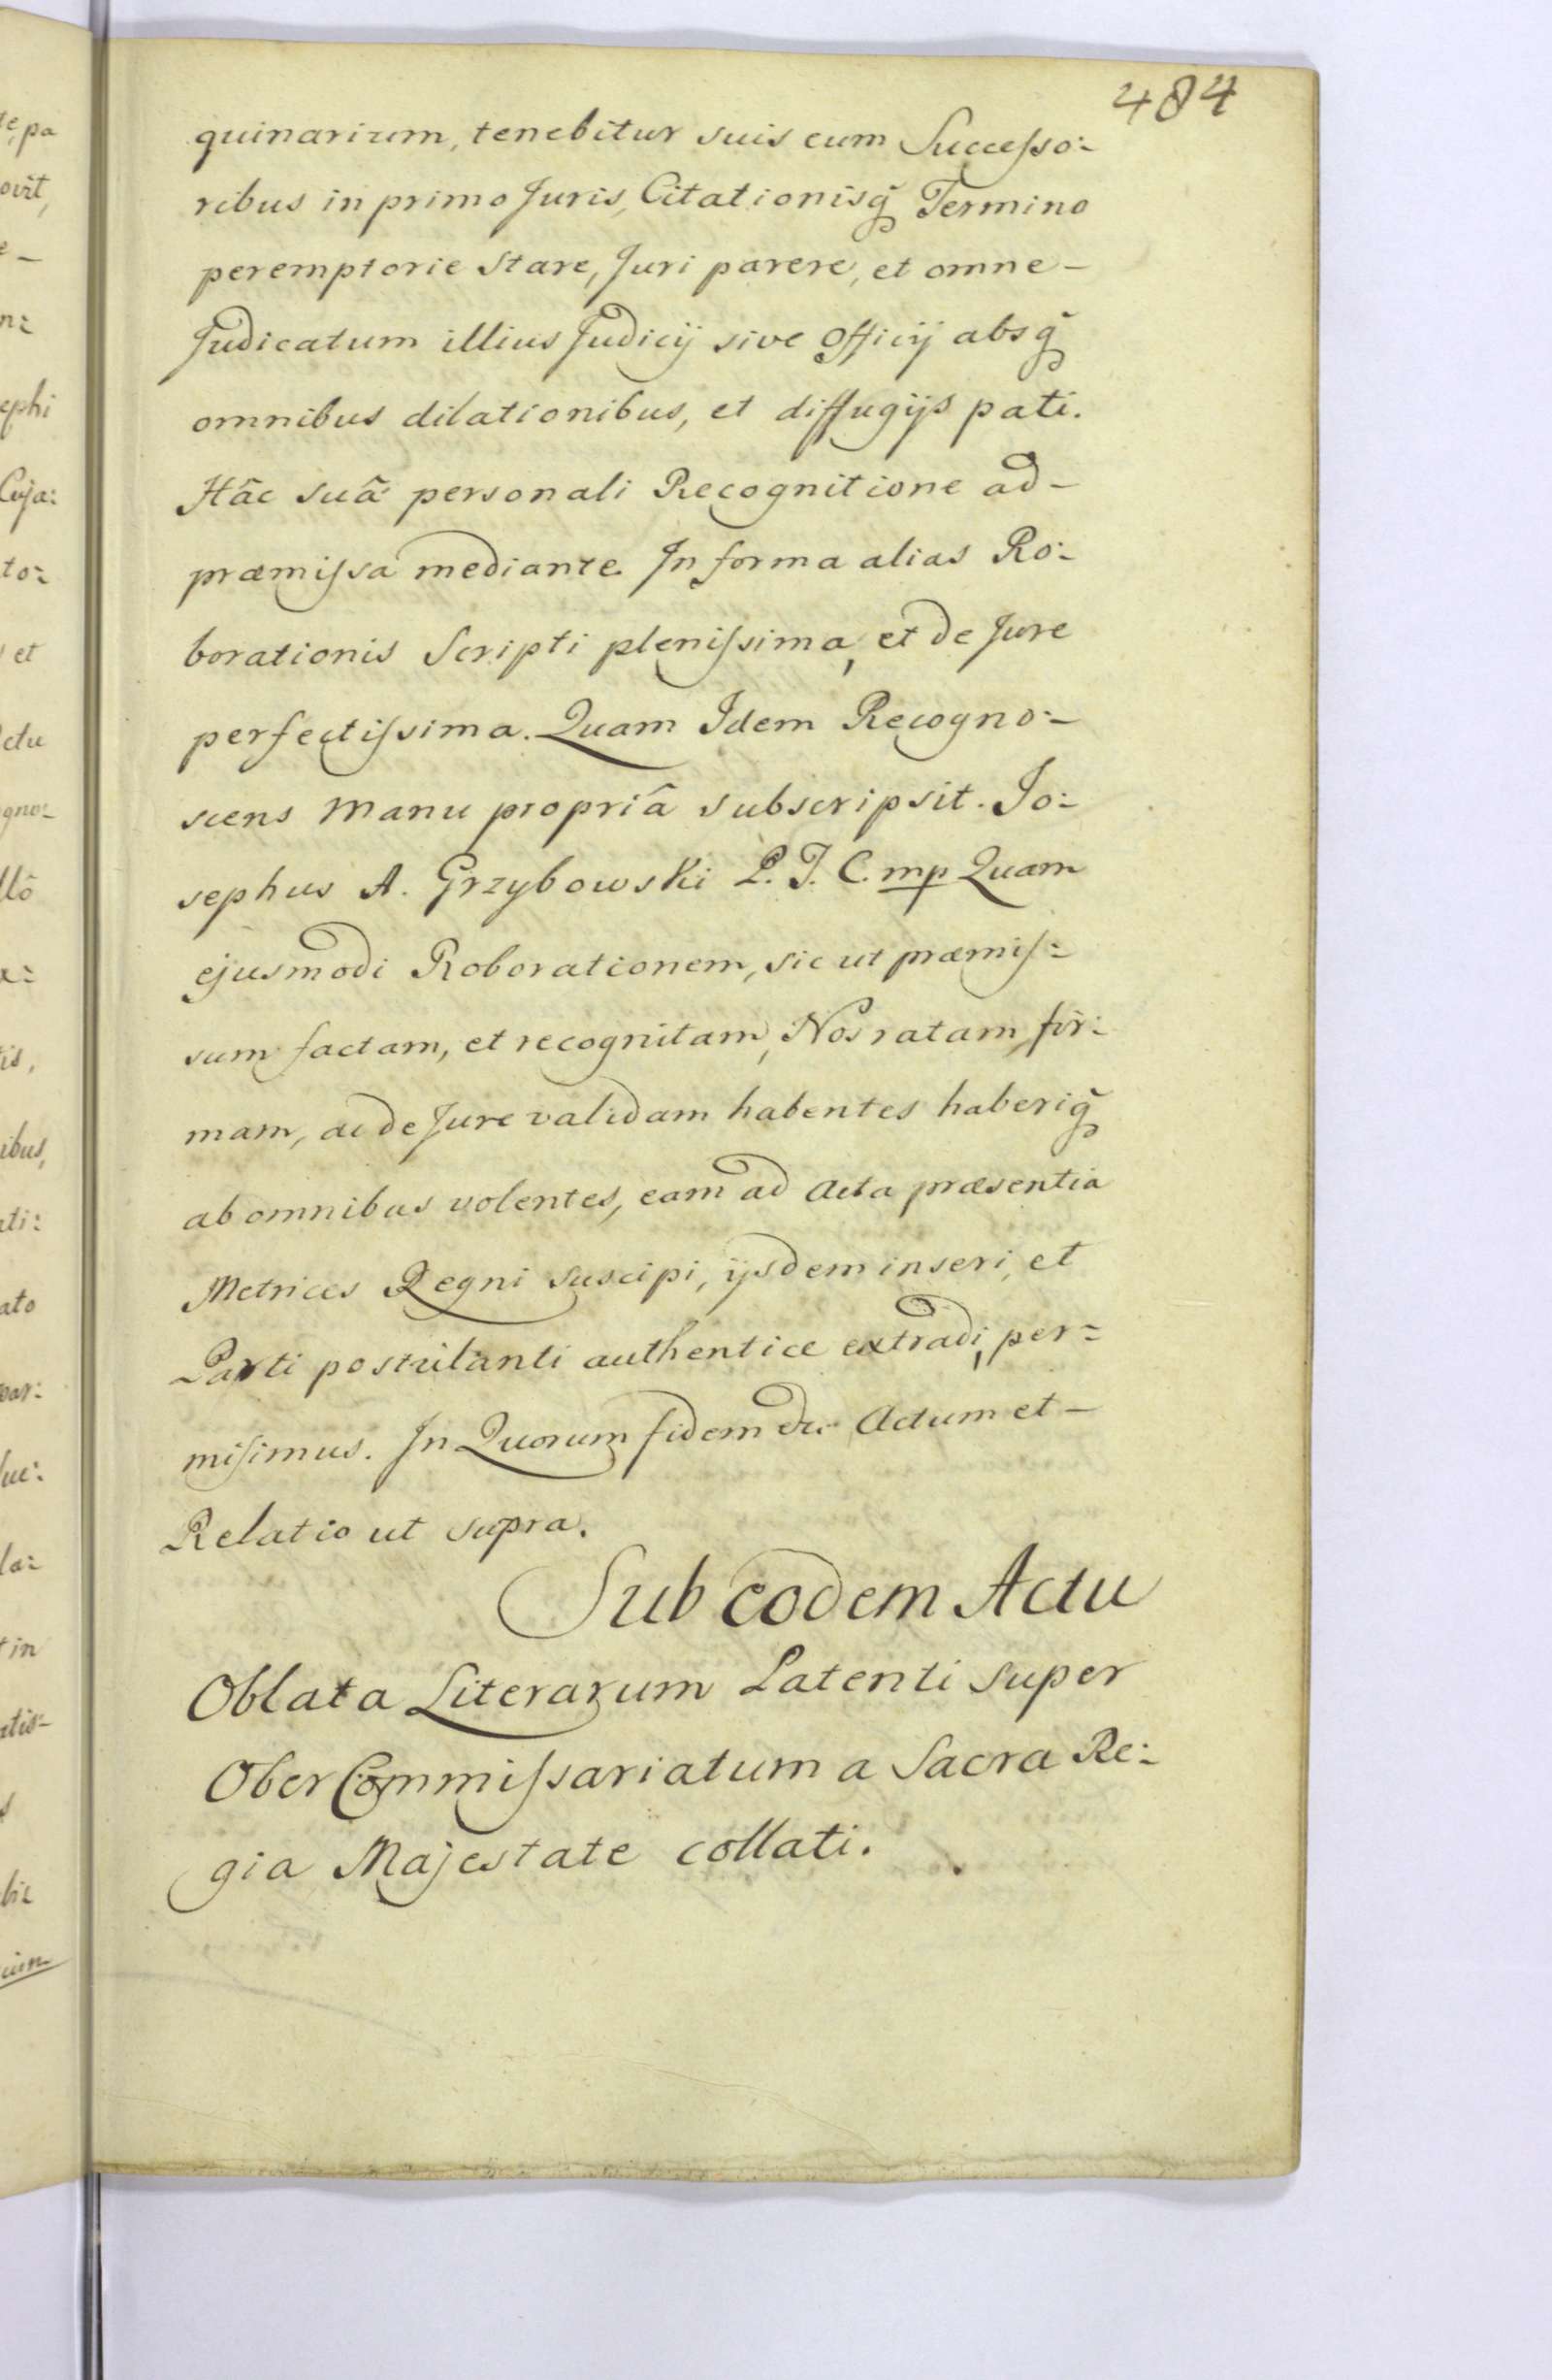 484
quinarium, tenebitur suis cum Successo:
ribus in primo Juris, Citationisq̃ Termino
peremptorie stare, Juri parere, et omne –
Judicatum illius Judicij sive Officij absq̃
omnibus dilationibus, et diffugijs pati.
Hâc suâ personali Recognitione ad –
præmissa mediante. In forma alias Ro:
borationis Scripti plenissima, et de Jure
perfectissima. Quam Idem Recogno:
scens manu propriâ subscripsit. Jo:
sephus A. Grzybowski P. J. C. mp Quam
ejusmodi Roborationem, sic ut præmis:
sum factam, et recognitam, Nos ratam, fir:
mam, ac de Jure validam habentes haberiq̃
ab omnibus volentes, eam ad Acta præsentia
Metrices Regni suscipi, ijsdem inseri, et
Parti postulanti authentice extradi, per:
misimus. In Quorum fidem Actum et –
Relatio ut supra.
Sub eodem Actu
Oblata Literarum Patenti super
Ober Commissariatum a Sacra Re:
gia Majestate collati.
e, pa
ovit,
e –
n:
ephi
Cuja:
to:
et
ctu
gno:
llô
tis,
ibus,
ati:
ato
par:
la:
in
atis: